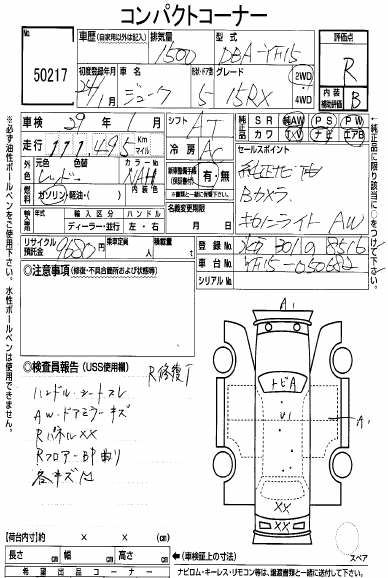 コンパクトコーナー
50217
車歴 (自家用以外は記入)
排気量
1500
型式
DBA-YF15
評価点
R
初度登録年月
24/1
車名
ジューク
形状・ドア数
5
グレード
15RX
2WD
4WD
内装補助評価
B
車検 29年1月
シフト AT
純正品 SR AW PS PW
カワ TV ナビ エアB
走行 111,495 Km マイル
冷房 AC
セールスポイント
純正ナビ
Bカメラ
キセノンライト AW
元色 色替 カラーNo.
レッド NAH
内装色
燃料 ガソリン・軽油・( )
新車整備手帳(保証書付) 有・無
輸入車 年式 輸入区分 ハンドル
ディーラー・並行 左・右
名義変更期限
月 日
リサイクル預託金 9680円
乗車定員 人
積載量 t
登録No.
301 8516
車台No. YF15-050682
シリアルNo.
◎注意事項 (修復・不具合箇所および状態等)
◎検査員報告 (USS使用欄)
R修復T
ハンドル・シートスレ
AW・ドアミラーキズ
RパネルXX
RフロアーBP曲り
各キズ有
A1
トビA
A1
XX
XX
スペア
【荷台内寸】約 × × (cm)
長さ cm 幅 cm 高さ cm
◀(車検証上の寸法)
希望出品コーナー
ナビロム・キーレス・リモコン等は、譲渡書類と一緒に送付して下さい。
※必ず油性ボールペンをご使用下さい。水性ボールペンは使用できません。
※純正品に限り該当に○をつけて下さい。